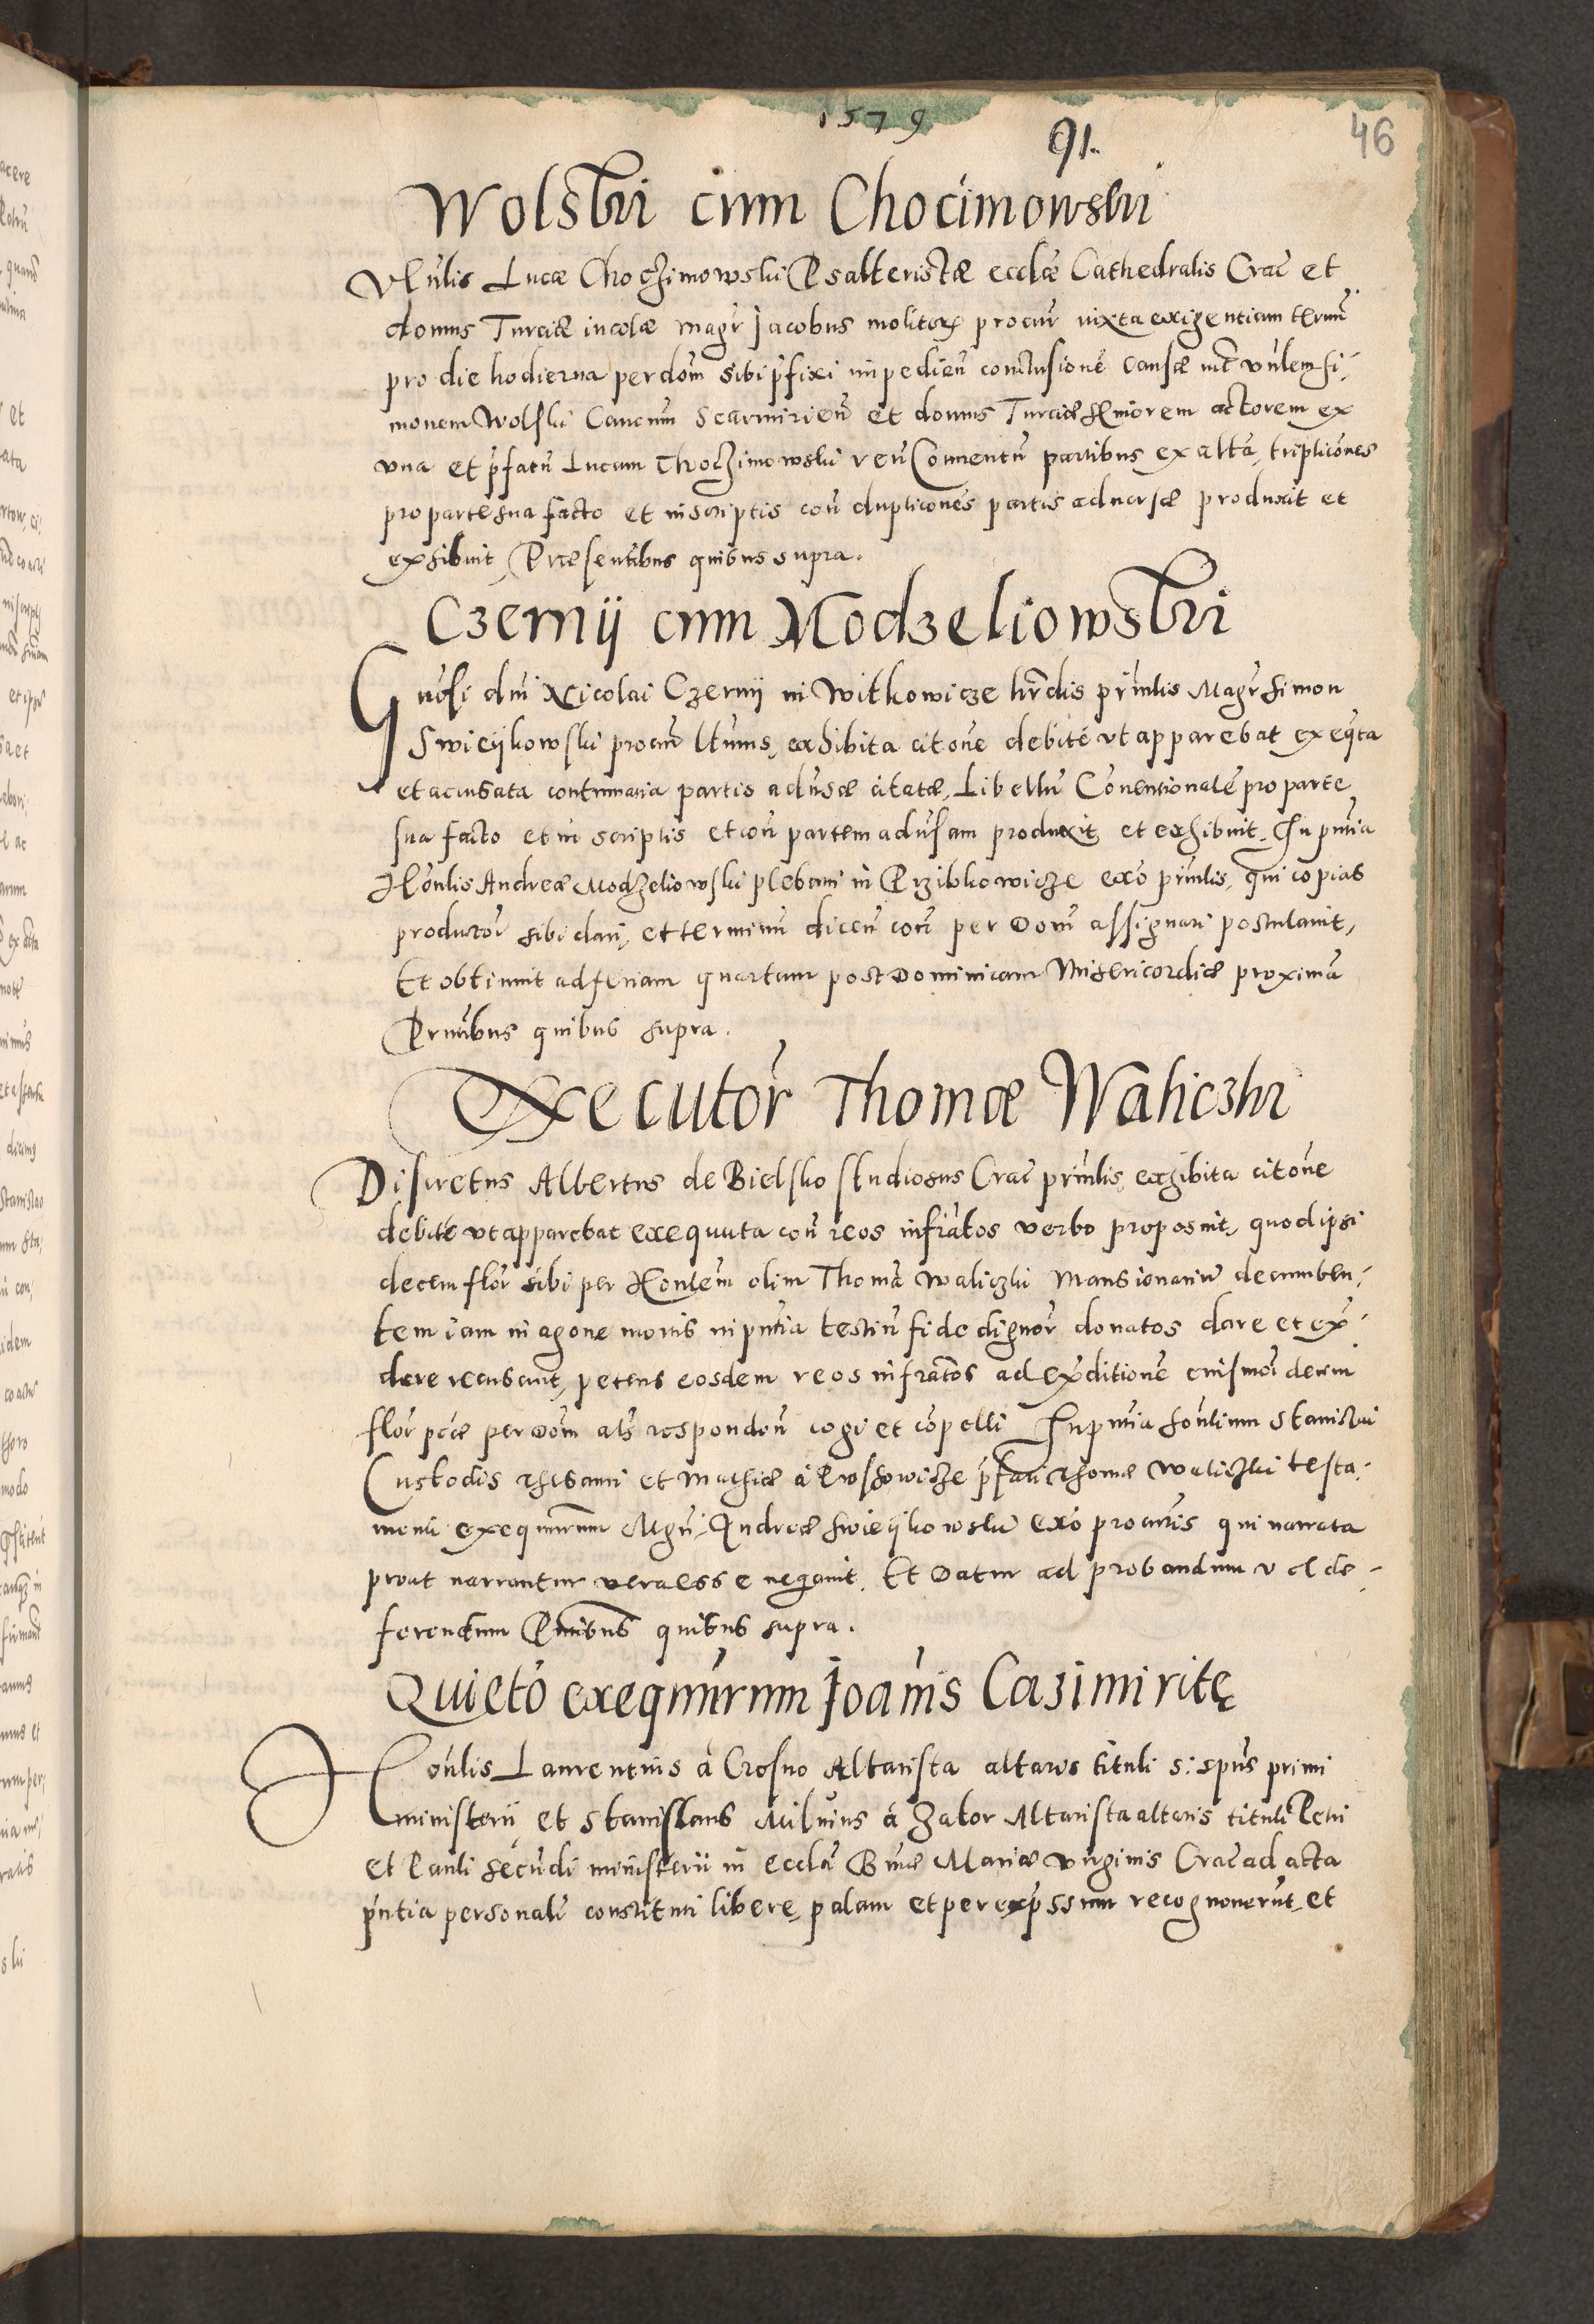 1579
91.
46
Wolski cum Chocimowski
Vñlis Lucæ Choczimowski Psalteristæ ecclæ Cathedralis Crac et
domus Turciæ incolæ Magr Jacobus molitor procur iuxta exigentiam termi
pro die hodierna per dom sibi pfixi impedien conclusionē causæ int vñlem Si-
monem Wolski Canonm Scarmirien et domus Turciæ seniorem actorem ex
vna et pfatu Lucam Choczimowski reu Conuentu partibus ex alta, triplicones
pro parte sua facto et in scriptis con duplicones partis aduersæ produxit et
exhibuit, Præsentibus quibus supra.
Czernij cum Modzeliowski
Gnosi dni Nicolai Czernij in Witkowicze hrdis prinlis Magr Simon
Swieijkowski procur ltimus, exhibita citone debite vt apparebat exeqta
et accusata contumatia partis aduersæ citatæ, Libellu Conuentionale pro parte
sua facto et in scriptis et con partem aduersam produxit et exhibuit. In pntia
Honlis Andreæ Modzeliowski plebani in Przibkowicze exo prinlis, qui copias
productor sibi dari, et terminu dicen con per Dom assignari postulauit,
Et obtinuit ad feriam quartam post Dominicam Misericordiæ proxima
Prntibus quibus supra.
Executor Thomæ Waliczki
Discretus Albertus de Bielsko studiosus Crac prinlis, exhibita citone
debite vt apparebat exequuta con reos infratos verbo proposuit, quod ipsi
decem flor sibi per Honlem olim Thoma Waliczki Mansionariu decumben-
tem iam in agone mortis in pntia testiu fide dignor donatos dare et ex-
dere recusant, petens eosdem reos infratos ad expditione eiusmoi decem
flor pcæ per Dom als respondon cogi et copelli In pntia honlium Stanislai
Custodis Thesauri et Mathiæ à pfati Thomæ Waliczki testa-
menti exequutorum Mgri Andreæ Swieijkowski exo procuris qui narrata
prout narrantur vera esse negauit. Et Datur ad probandum vel de-
ferendum Pntibus quibus supra.
Quieto exequutorum Joannis Casimiritę
Honlis Laurentius à Crosno Altarista altaris tituli S: Spus primi
ministerij et Stanislaus Miluius à Zator Altarista altaris tituli Petri
et Pauli secudi ministerii in eccla Btæ Mariæ virginis Crac ad acta
pntia personalr constituti libere, palam et per expssum recognouerut, et